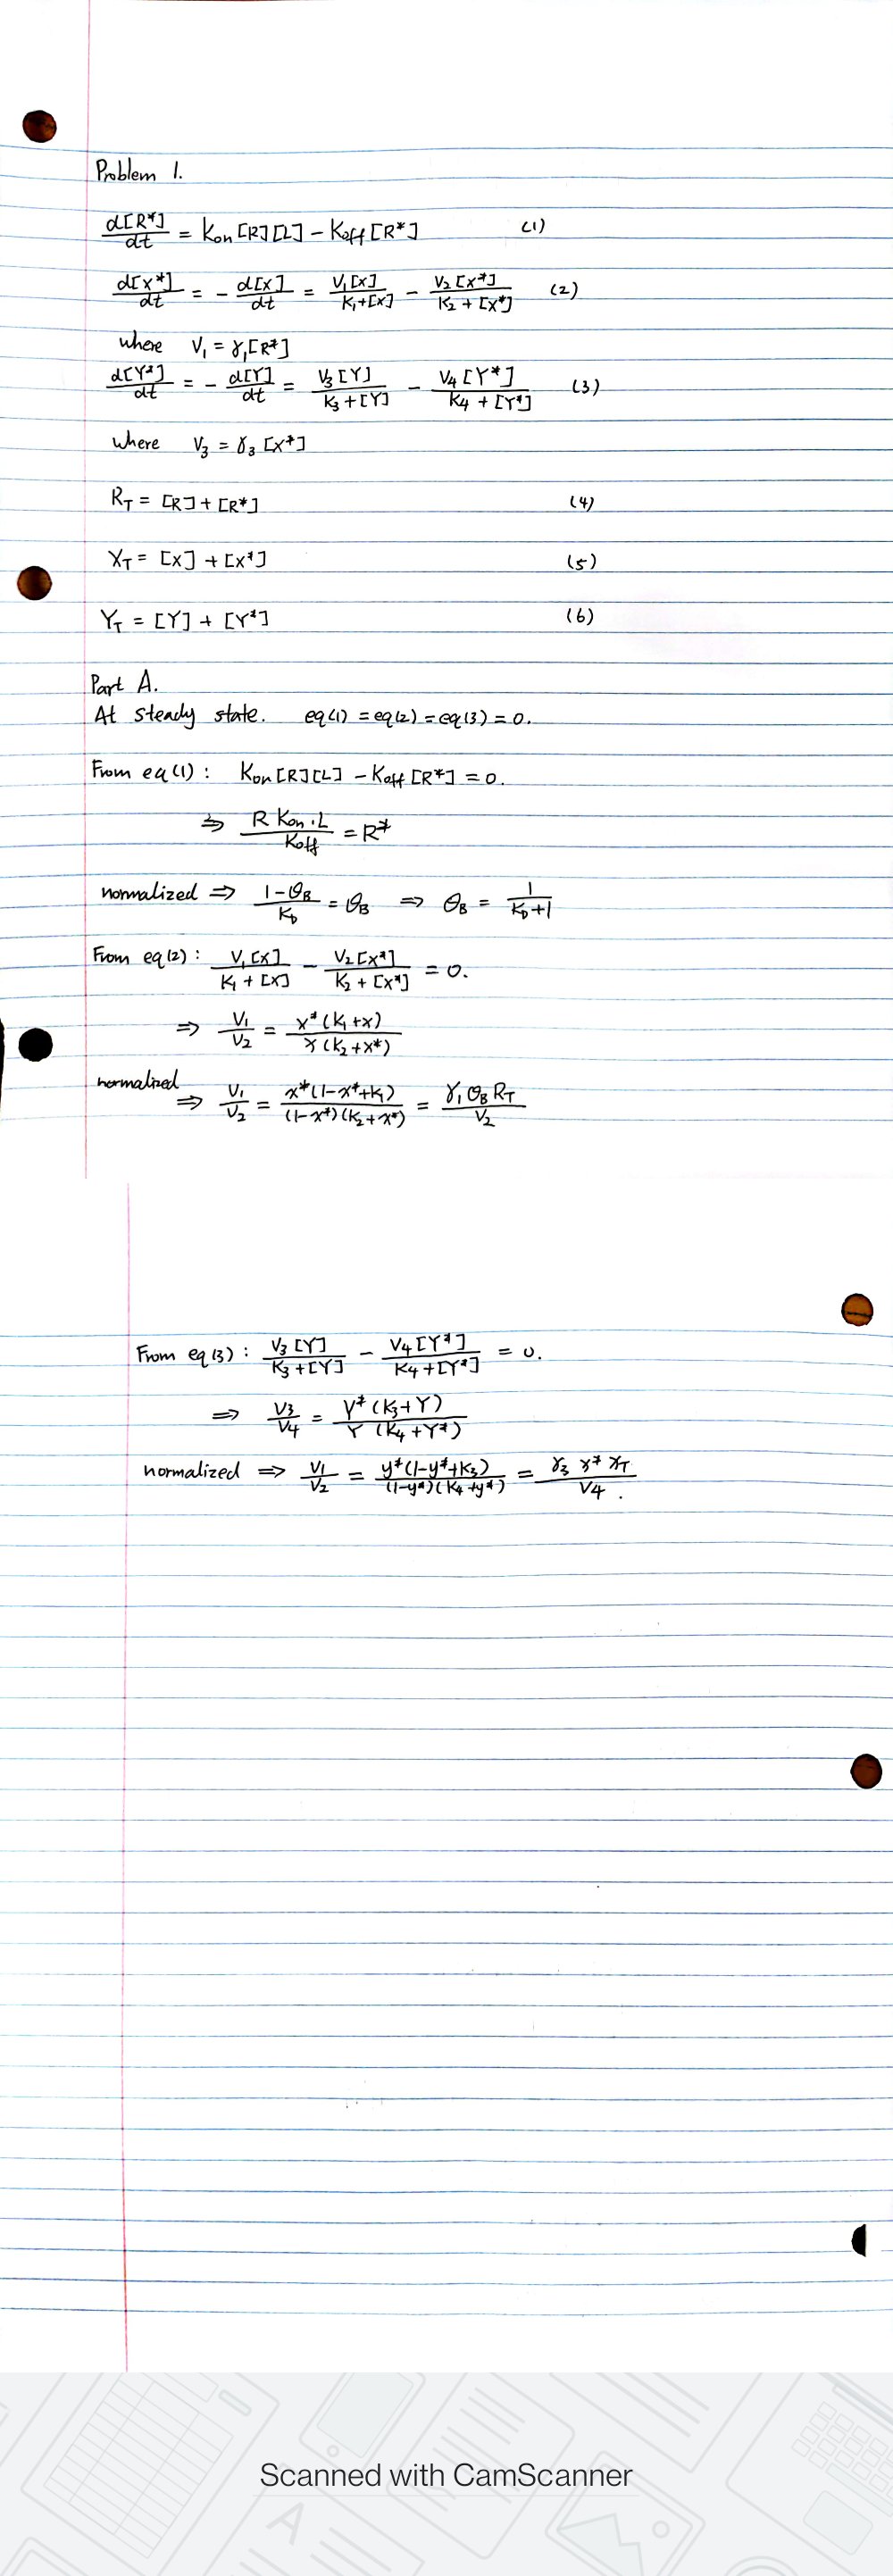 Problem 1.
d[R*]/dt = Kon [R][L] - Koff [R*] (1)
d[x*]/dt = - d[x]/dt = V₁[x]/K₁+[x] - V₂[x*]/K₂+[x*] (2)
where V₁ = γ₁[R*]
d[Y*]/dt = - d[Y]/dt = V₃[Y]/K₃+[Y] - V₄[Y*]/K₄+[Y*] (3)
where V₃ = γ₃ [x*]
R_T = [R] + [R*] (4)
X_T = [x] + [x*] (5)
Y_T = [Y] + [Y*] (6)
Part A.
At steady state. eq(1) = eq(2) = eq(3) = 0.
From eq(1): Kon [R][L] - Koff [R*] = 0.
⇒ R Kon·L/Koff = R*
normalized ⇒ 1-θB/KD = θB ⇒ θB = 1/KD+1
From eq(2): V₁[x]/K₁+[x] - V₂[x*]/K₂+[x*] = 0.
⇒ V₁/V₂ = x*(K₁+x)/x(K₂+x*)
normalized ⇒ V₁/V₂ = x*(1-x*+K₁)/(1-x*)(K₂+x*) = γ₁θB R_T/V₂
From eq(3): V₃[Y]/K₃+[Y] - V₄[Y*]/K₄+[Y*] = 0.
⇒ V₃/V₄ = Y*(K₃+Y)/Y(K₄+Y*)
normalized ⇒ V₁/V₂ = y*(1-y*+K₃)/(1-y*)(K₄+y*) = γ₃ x* X_T/V₄.
Scanned with CamScanner